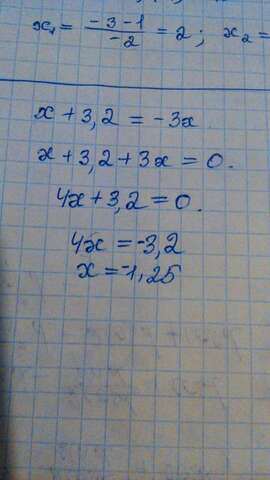 x₁ = -3-1 / -2 = 2; x₂ =
x + 3,2 = -3x
x + 3,2 + 3x = 0.
4x + 3,2 = 0.
4x = -3,2
x = -1,25